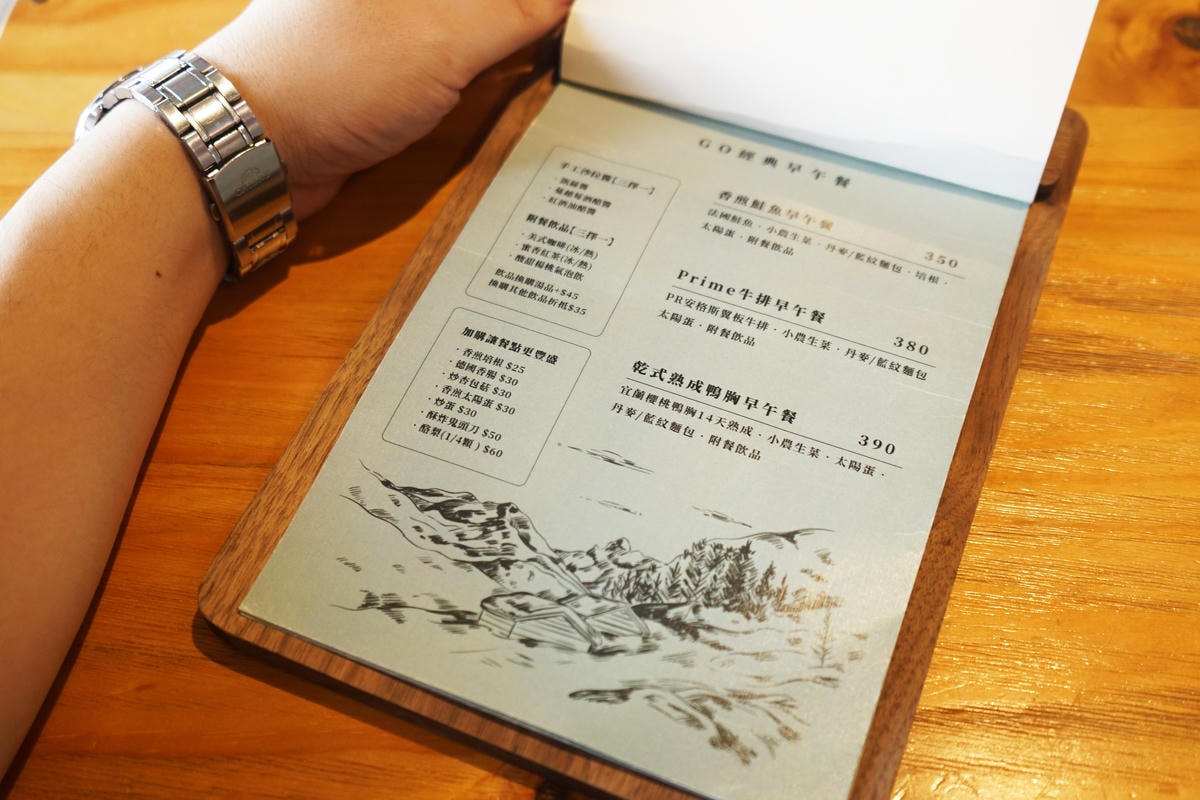 GO經典早午餐
手工沙拉醬[三擇一]
·蔓越莓酒醋醬
·紅酒油醋醬
附餐飲品[三擇一]
·美式咖啡(冰/熱)
·蜜香紅茶(冰/熱)
·酸甜楊桃氣泡飲
飲品換購湯品+$45
換購其他飲品折抵$35
加購讓餐點更豐盛
·香煎培根 $25
·德國香腸 $30
·炒杏包菇 $30
·香煎太陽蛋 $30
·炒蛋 $30
·酥炸鬼頭刀 $50
·酪梨(1/4顆) $60
香煎鮭魚早午餐 350
法國鮭魚·小農生菜·丹麥/藍紋麵包·培根·
太陽蛋·附餐飲品
Prime牛排早午餐 380
PR安格斯翼板牛排·小農生菜·丹麥/藍紋麵包
太陽蛋·附餐飲品
乾式熟成鴨胸早午餐 390
宜蘭櫻桃鴨胸14天熟成·小農生菜·太陽蛋·
丹麥/藍紋麵包·附餐飲品